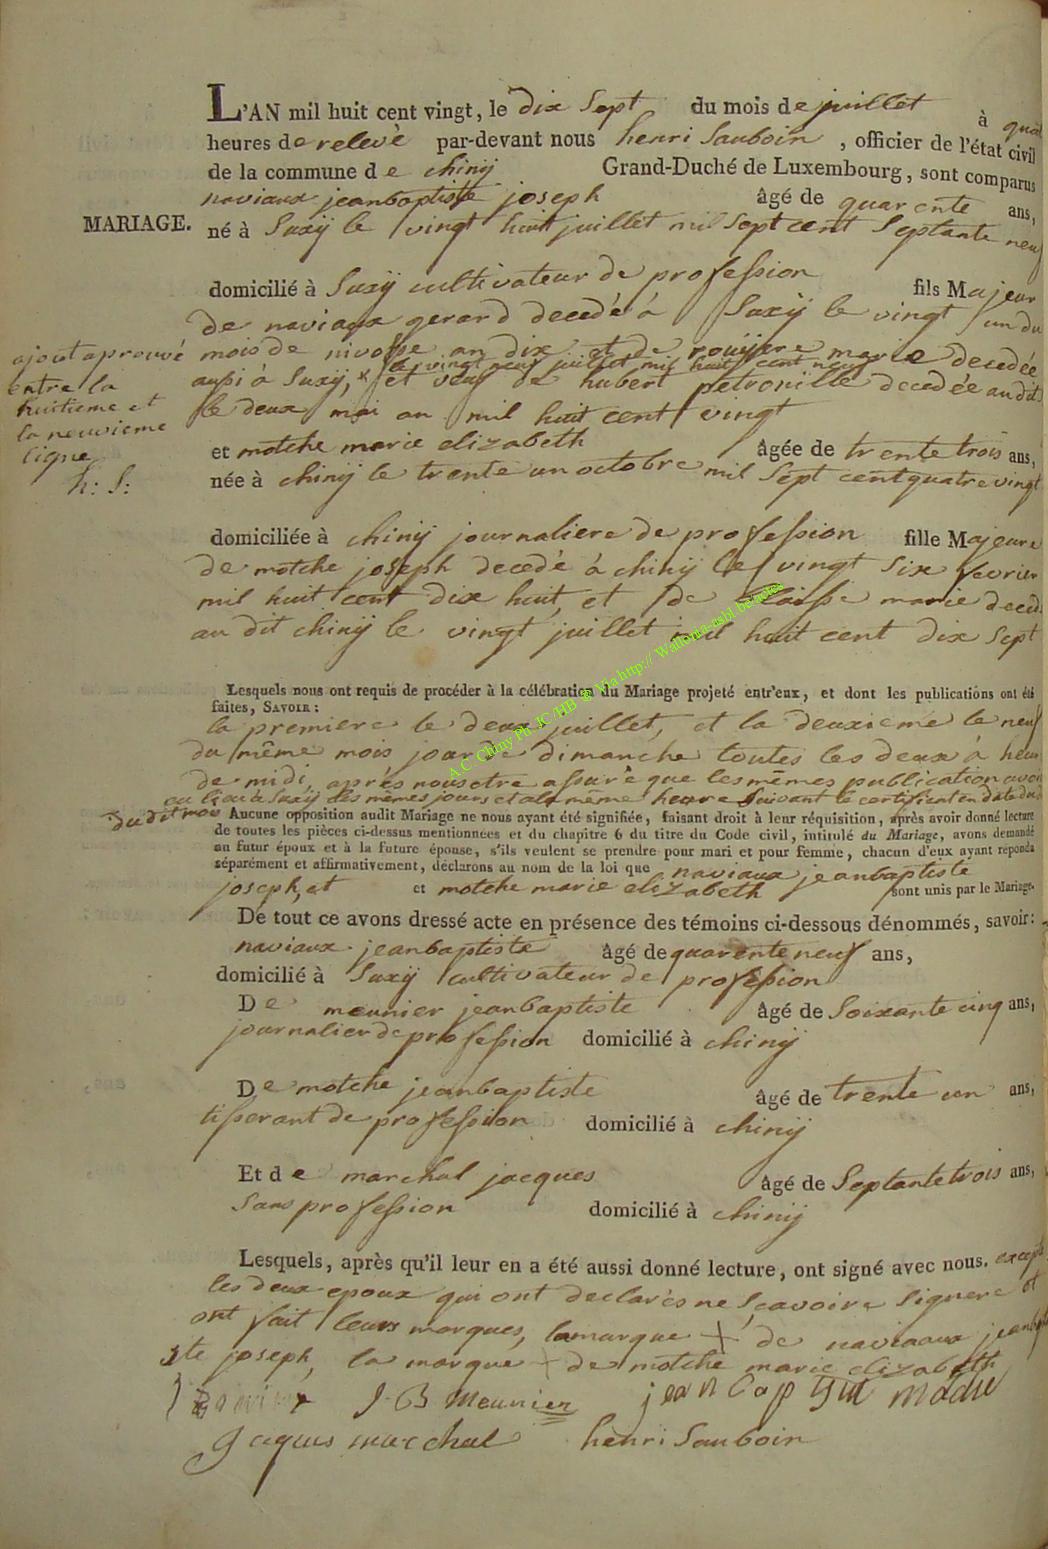 L'AN mil huit cent vingt, le dix Sept du mois de juillet à quat
heures de relevè par-devant nous henri Sauboin, officier de l'état civil
de la commune de chinÿ Grand-Duché de Luxembourg, sont comparus
naviaux jeanbaptiste joseph âgé de quarente ans,
MARIAGE.
né à Suxÿ le vingt huit juillet mil Sept cent Septante neuf
domicilié à Suxÿ cultivateur de profession fils Majeur
de naviaux gerard decedé à Suxÿ le vingt un du
mois de nivosse an dix et de rouÿere marie decedée
le vingt neuf juillet mil huit cent neuf
aussi à Suxÿ, x et veuf de hubert petronille decedée au dit S
le deux mai an mil huit cent vingt
ajout aprouvé
entre la
huitieme et
la neuvieme
ligne
h: S:
et motche marie elizabeth âgée de trente trois ans,
née à chinÿ le trente un octobre mil Sept cent quatre vingt
domiciliée à chinÿ journaliere de profession fille Majeure
de motche joseph decedé à chinÿ le vingt Six fevrier
mil huit cent dix huit et de marie deced
au dit chinÿ le vingt juillet mil huit cent dix Sept
Lesquels nous ont requis de procéder à la célébration du Mariage projeté entr'eux, et dont les publications ont été
faites, SAVOIR:
la premiere le deux juillet, et la deuxieme le neuf
du même mois jour de dimanche toutes les deux à heur
de midi, après nous etre assurè que les mêmes publication avoi
eu lieu à Suxÿ les mêmes jours et a la même heure Suivant le certificat en date du d
du dit mois
Aucune opposition audit Mariage ne nous ayant été signifiée, faisant droit à leur réquisition, après avoir donné lecture
de toutes les pièces ci-dessus mentionnées et du chapitre 6 du titre du Code civil, intitulé du Mariage, avons demandé
au futur époux et à la future épouse, s'ils veulent se prendre pour mari et pour femme, chacun d'eux ayant répondu
séparément et affirmativement, déclarons au nom de la loi que naviaux jeanbaptiste
joseph, et et motche marie elizabeth sont unis par le Mariage.
De tout ce avons dressé acte en présence des témoins ci-dessous dénommés, savoir:
naviaux jeanbaptiste âgé de quarente neuf ans,
domicilié à Suxÿ cultivateur de profession
De meunier jeanbaptiste âgé de Soixante cinq ans,
journalier de profession domicilié à chinÿ
De motche jeanbaptiste âgé de trente un ans,
tisserant de profession domicilié à chinÿ
Et de marchal jacques âgé de Septante trois ans,
Sans profession domicilié à chinÿ
Lesquels, après qu'il leur en a été aussi donné lecture, ont signé avec nous. except
les deux epoux qui ont declarès ne Scavoire Signere et
ont fait leurs marques, la marque + de naviaux jeanbapti
ste joseph, la marque + de motche marie elizabeth
J-B Meunier
jaques marchal henri Sauboin
A.C. Chiny Ph. JC/HB © Via http:// Wallonia-asbl.be/actes